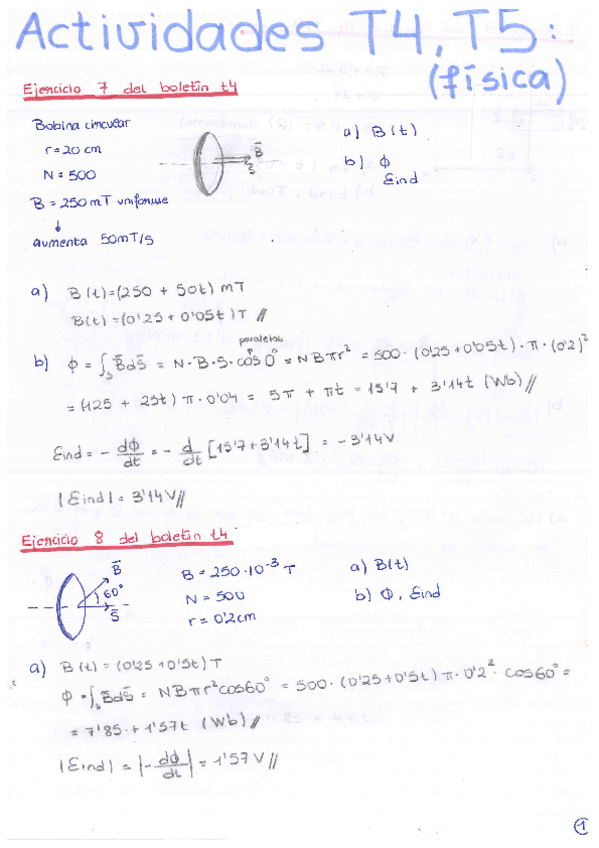 Actividades T4, T5:
(física)
Ejercicio 7 del boletín t4
Bobina circular
r = 20 cm
N = 500
B = 250 mT uniforme
↓
aumenta 50mT/s
B̄
S̄
a) B(t)
b) ϕ
Eind
a) B(t)=(250 + 50t) mT
B(t)=(0'25 + 0'05t) T //
paralelas
b) ϕ = ∫s B̄dS̄ = N·B·S·cos0° = NBπr² = 500·(0'25+0'05t)·π·(0'2)²
= (125 + 25t) π·0'04 = 5π + πt = 15'7 + 3'14t (Wb) //
Eind = - dϕ/dt = - d/dt [15'7+3'14t] = - 3'14V
|Eind| = 3'14V //
Ejercicio 8 del boletín t4
B̄
60°
S̄
B = 250·10⁻³ T
N = 500
r = 0'2cm
a) B(t)
b) ϕ, Eind
a) B(t) = (0'25+0'5t)T
ϕ = ∫s B̄dS̄ = NBπr²cos60° = 500·(0'25+0'5t)π·0'2²·cos60° =
= 7'85 + 1'57t (Wb) //
|Eind| = |- dϕ/dt| = 1'57V //
1